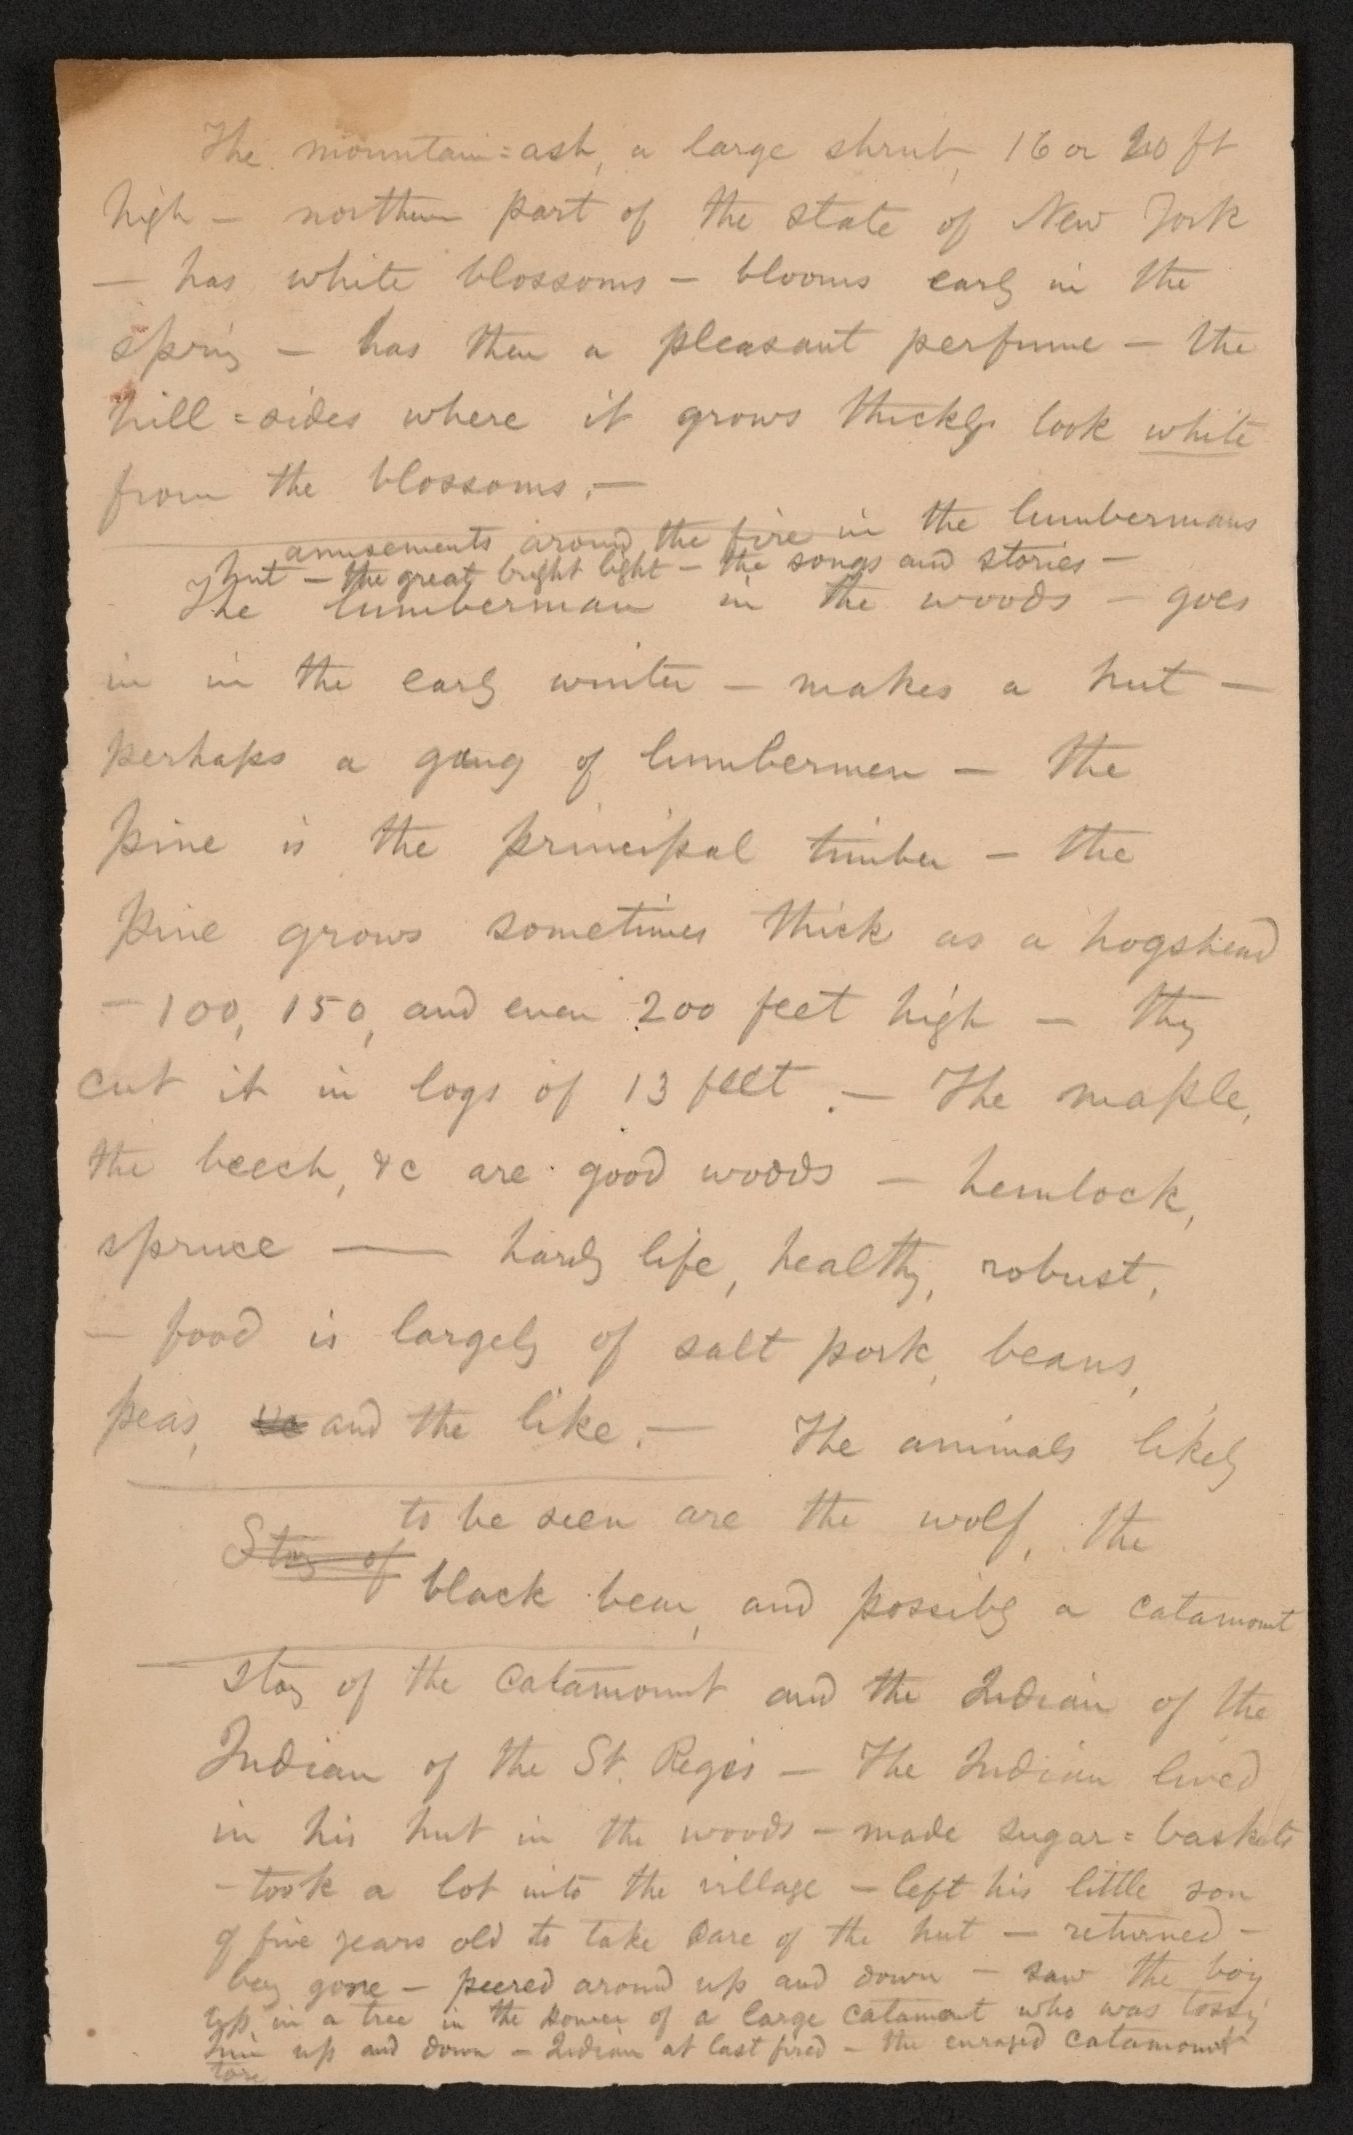 The mountain=ash, a large shrub, 16 or 20 ft
high — northern part of the state of New York
— has white blossoms — blooms early in the
spring — has then a pleasant perfume — the
hill=sides where it grows thickly look white
from the blossoms.—
amusements around the fire in the lumbermans
hut — the great bright light — the songs and stories —
The lumberman in the woods — goes
in in the early winter — makes a hut —
perhaps a gang of lumbermen — the
pine is the principal timber — the
pine grows sometimes thick as a hogshead
— 100, 150, and even 200 feet high — they
cut it in logs of 13 feet. — The maple,
the beech, &c are good woods — hemlock,
spruce — hardy life, healthy, robust,
— food is largely of salt pork, beans,
peas, &c and the like. — The animals likely
to be seen are the wolf, the
Story of
black bear, and possibly a catamount
story of the catamount and the Indian of the
Indian of the St. Regis — The Indian lived
in his hut in the woods — made sugar=baskets
— took a lot into the village — left his little son
of five years old to take care of the hut — returned —
boy gone — peered around up and down — saw the boy
up in a tree in the power of a large catamount who was tossing
him up and down — Indian at last fired — the enraged catamount
tore